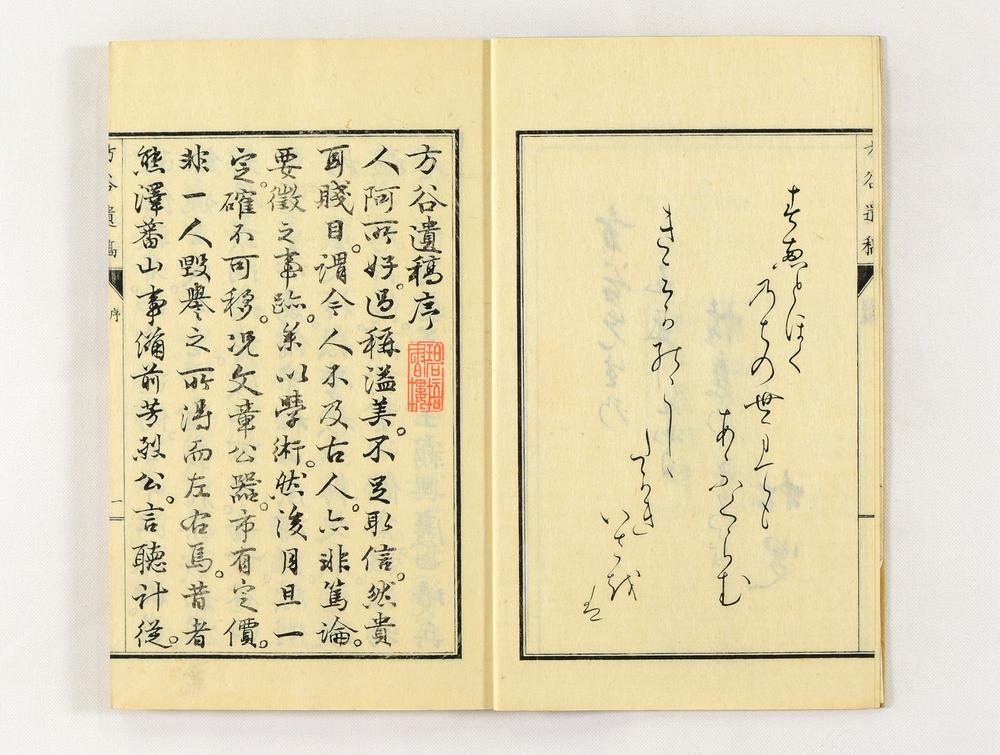 方谷遺稿
す恵とほく
乃ちの世まても
あふくらむ
たかき
いさ越
方谷遺稿序
人阿所好。過稱溢美。不足取信。然貴
耳賤目。謂今人不及古人。亦非篤論。
要徵之事跡。參以學術。然後月旦一
定。確不可移。況文章公器。市有定價。
非一人毀譽之所得而左右焉。昔者
熊澤蕃山事備前芳烈公。言聽計從。
方谷遺稿
序
一